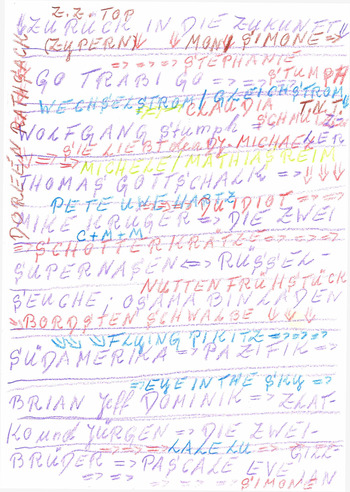 Z.Z. TOP
ZURÜCK IN DIE ZUKUNFT
(ZYPERN) ↓ ↓ MONY SIMONE =>
=> => => => STEPHANIE
GO TRABI GO => => STUMPH
WECHSELSTROM/GLEICHSTROM
CLAUDIA T.N.T.
WOLFGANG Stumph =>
SIE LIEBT MICHAEL
=> => MICHELE/MATHIAS REIM
THOMAS GOTTSCHALK => ↓ ↓ ↓
PETE => DU IDIOT => =>
MIKE KRÜGER => DIE ZWEI
C+M+M
=> SCHOTTERKRÄTZE => => => =>
SUPERNASEN <=> RUSSEL-
NUTTENFRÜHSTÜCK
SEUCHE; OSAMA BIN LADEN
BORDSTEN SCHWALBE ↓ ↓ ↓
FLYING PIKITZ => => =>
SÜDAMERIKA => PAZIFIK =>
=> EYE IN THE SKY => =>
BRIAN Jeff DOMINIK => ZLAT-
KO und JÜRGEN => DIE ZWEI-
=> => => LALELU => => GILL-
BRÜDER => PASCALE EVE IAN
=> => => => SIMONE
DOREEN RATHSACK